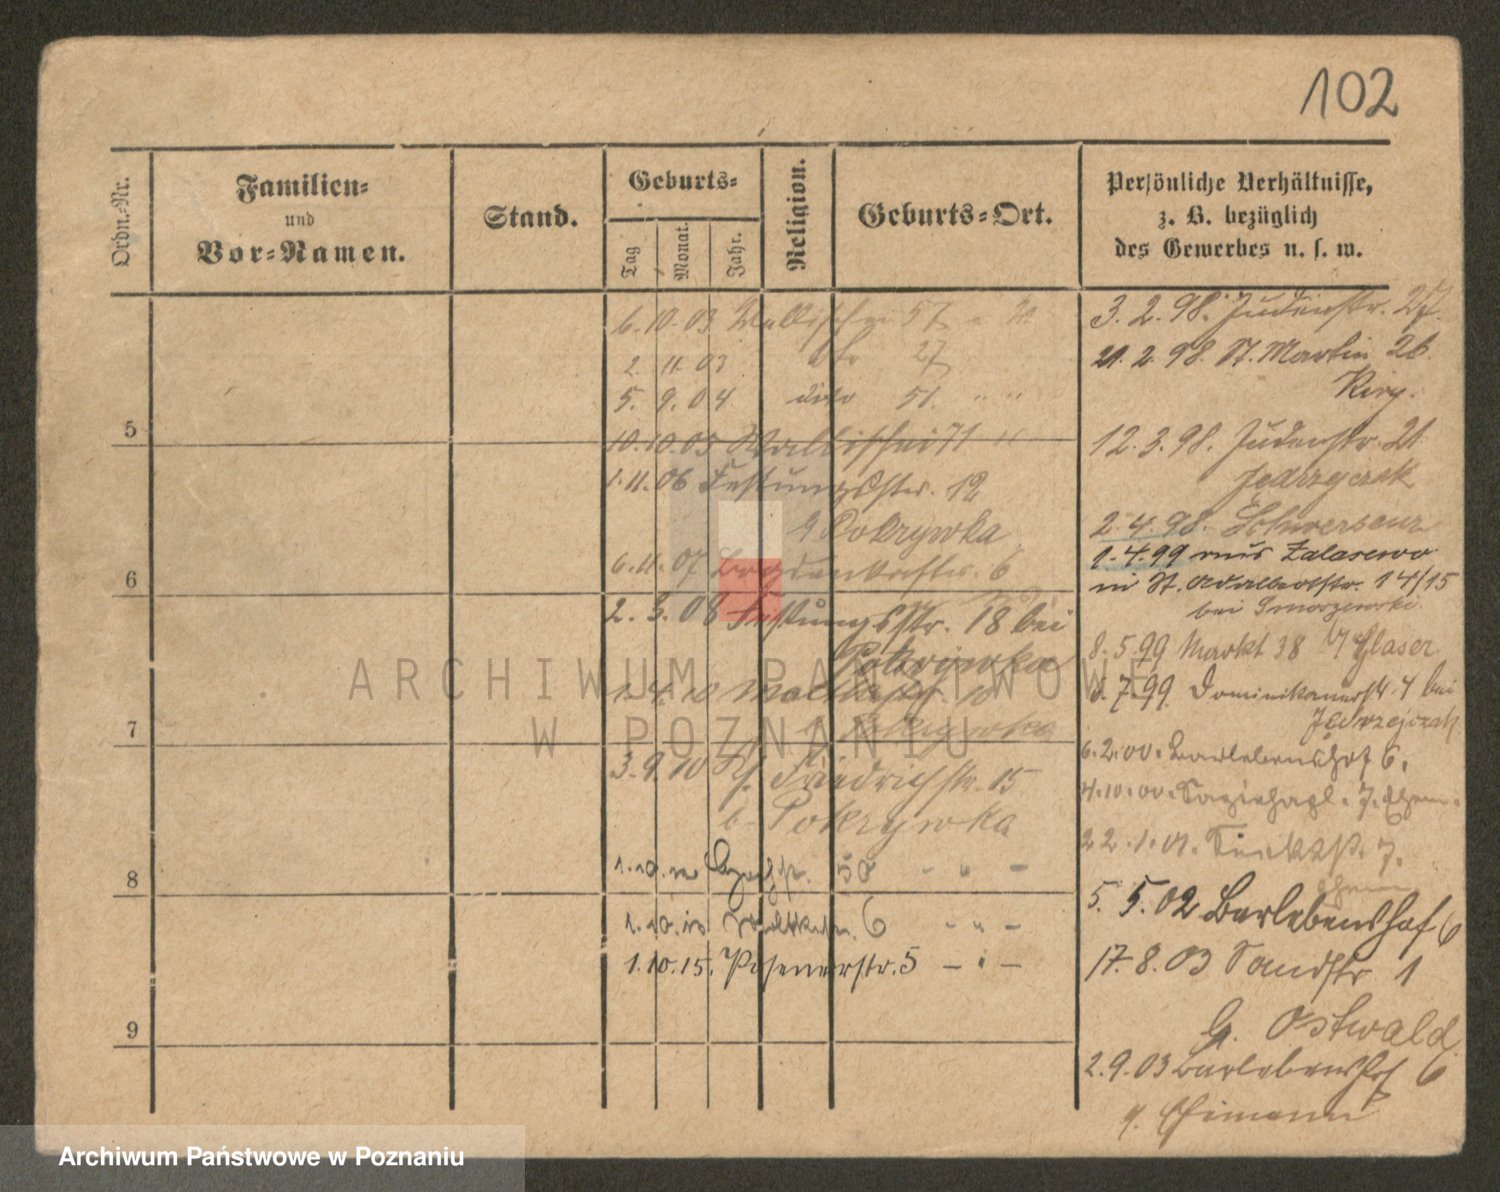 102
Ordn.-Nr.
Familien-
und
Vor-Namen.
Stand.
Geburts-
Tag
Monat.
Jahr.
Religion.
Geburts-Ort.
Persönliche Verhältnisse,
z. B. bezüglich
des Gewerbes u. s. w.
6.10.03 Wallischei 57 "
2. 11. 03 dto 27
5. 9. 04 dito 51. " "
5
10.10.05 Wallischei 71 "
1.11.06 Festungsstr. 12
Pokrywka
6.11.07 6
6
2. 3. 08 Festungsstr. 18 bei
Pokrywka
1.4.10
Pokrywka
7
3.9.10 Friedrichstr. 15
b. Pokrywka
8
1.10. 50 - " -
1.10. 6 - " -
1.10.15. Posenerstr. 5 - " -
9
3. 2. 98. Judenstr. 27.
21. 2. 98. St. Martin 26.
12. 3. 98. Judenstr. 21
Jedrzejczak
2. 4. 98. Schwersenz
1. 4. 99 aus Zalasewo
in St. Adalbertstr. 14/15
bei Smoszewski
8. 5. 99 Markt 38 Glaser
7. 99 Dominikanerstr. 4 bei
Jedrzejczak
6. 2. 00. Barlebenshof 6.
4.10.00. 7.
22. 1. 01. 7.
5. 5. 02 Barlebenshof 6
17. 8. 03 Sandstr 1
G. Ostwald
2. 9. 03 Barlebenshof 6
ARCHIWUM PAŃSTWOWE
W POZNANIU
Archiwum Państwowe w Poznaniu